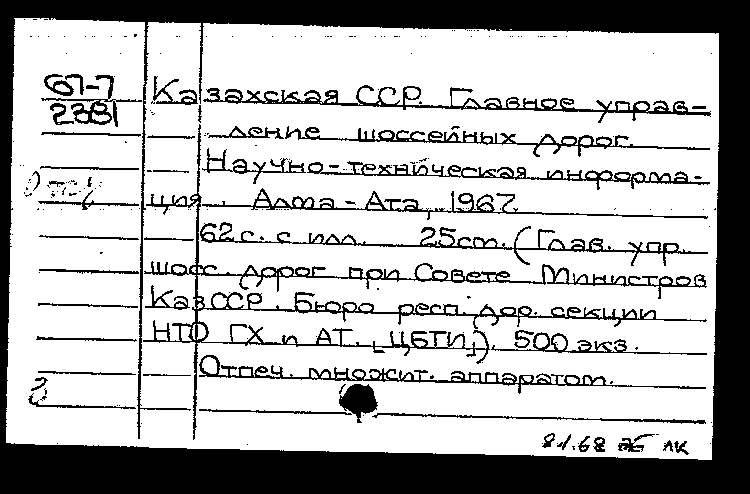 67-7
2381
Казахская ССР. Главное управ-
ление шоссейных дорог.
Научно-техническая информа-
ция. Алма-Ата, 1967.
62 с. с илл. 25 cm. (Глав. упр.
шосс. дорог при Совете Министров
КазССР. Бюро респ. дор. секции
НТО ГХ и АТ. [ЦБТИ]). 500 экз.
Отпеч. множит. аппаратом.
8.1.68 ЛК